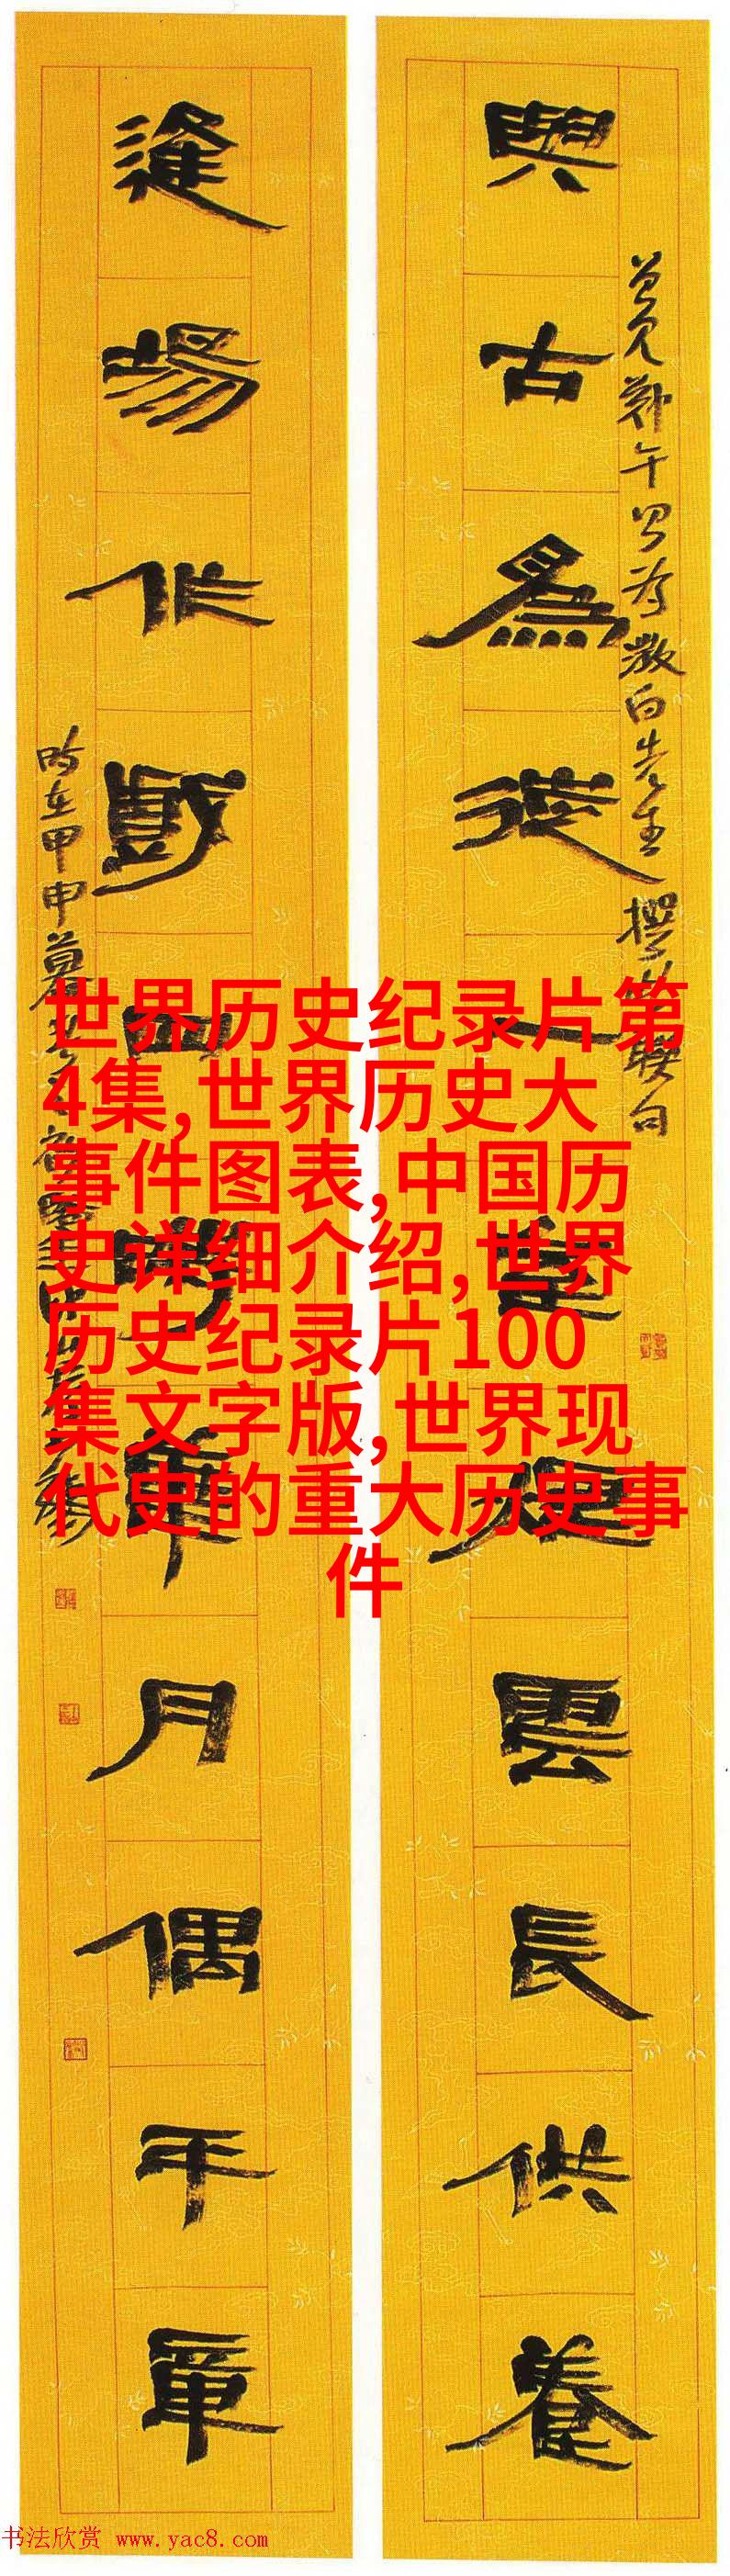 與古為徒一煙雲長供養
曾見鄭午昌為先生撰此聯句
逢場作戲四華月偶平章
時在甲申暮
世界历史纪录片第
4集,世界历史大
事件图表,中国历
史详细介绍,世界
历史纪录片100
集文字版,世界现
代史的重大历史事
件
书法欣赏 www.yac8.com